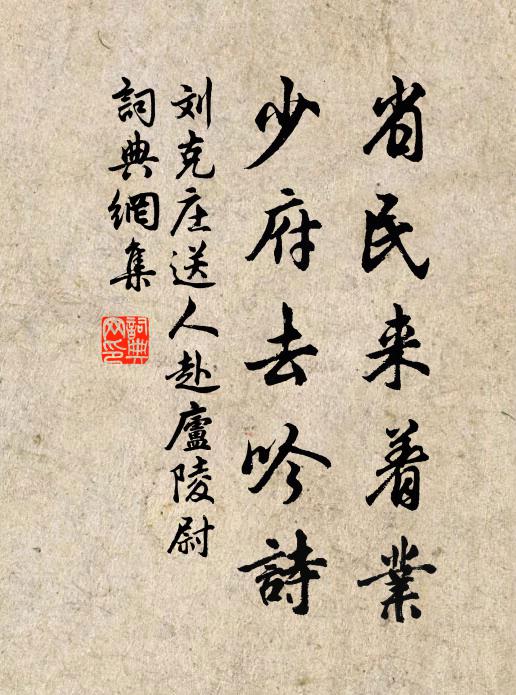 省民来着業
少府去吟詩
刘克庄送人赴廬陵尉
詞典網集
詞典网印